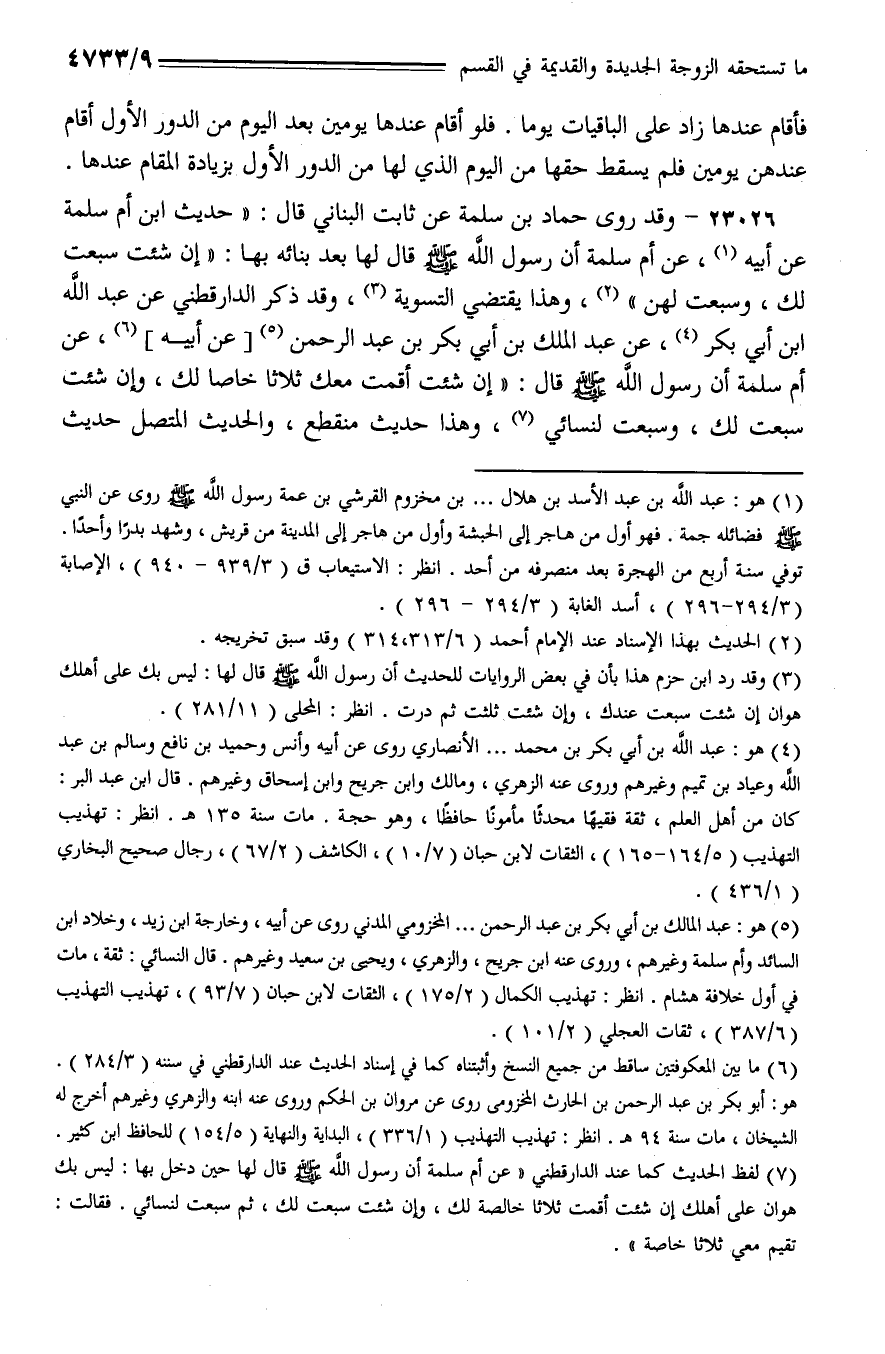 ما تستحقه الزوجة الجديدة والقديمة في القسم ٤٧٣٣/٩
فأقام عندها زاد على الباقيات يوما . فلو أقام عندها يومين بعد اليوم من الدور الأول أقام
عندهن يومين فلم يسقط حقها من اليوم الذي لها من الدور الأول بزيادة المقام عندها .
٢٣٠٢٦ – وقد روى حماد بن سلمة عن ثابت البناني قال : « حديث ابن أم سلمة
عن أبيه (١) ، عن أم سلمة أن رسول اللَّه ﷺ قال لها بعد بنائه بهـا : « إن شئت سبعت
لك ، وسبعت لهن » (٢) ، وهذا يقتضي التسوية (٣) ، وقد ذكر الدارقطني عن عبد اللَّه
ابن أبي بكر (٤) ، عن عبد الملك بن أبي بكر بن عبد الرحمن (٥) [ عن أبيـه ] (٦) ، عن
أم سلمة أن رسول اللَّه ﷺ قال : « إن شئت أقمت معك ثلاثا خاصا لك ، وإن شئت
سبعت لك ، وسبعت لنسائي (٧) ، وهذا حديث منقطع ، والحديث المتصل حديث
(١) هو : عبد اللَّه بن عبد الأسد بن هلال ... بن مخزوم القرشي بن عمة رسول اللَّه ﷺ روى عن النبي
ﷺ فضائله جمة . فهو أول من هاجر إلى الحبشة وأول من هاجر إلى المدينة من قريش ، وشهد بدرًا وأحدًا .
توفي سنة أربع من الهجرة بعد منصرفه من أحد . انظر : الاستيعاب ق ( ٩٣٩/٣ – ٩٤٠ ) ، الإصابة
(٢٩٤/٣-٢٩٦ ) ، أسد الغابة ( ٢٩٤/٣ – ٢٩٦ ) .
(٢) الحديث بهذا الإسناد عند الإمام أحمد ( ٣١٤،٣١٣/٦ ) وقد سبق تخريجه .
(٣) وقد رد ابن حزم هذا بأن في بعض الروايات للحديث أن رسول اللَّه ﷺ قال لها : ليس بك على أهلك
هوان إن شئت سبعت عندك ، وإن شئت ثلثت ثم درت . انظر : المحلى ( ٢٨١/١١ ) .
(٤) هو : عبد اللَّه بن أبي بكر بن محمد ... الأنصاري روى عن أبيه وأنس وحميد بن نافع وسالم بن عبد
اللَّه وعياد بن تميم وغيرهم وروى عنه الزهري ، ومالك وابن جريج وابن إسحاق وغيرهم . قال ابن عبد البر :
كان من أهل العلم ، ثقة فقيهًا محدثًا مأمونًا حافظًا ، وهو حجة . مات سنة ١٣٥ هـ . انظر : تهذيب
التهذيب ( ١٦٤/٥-١٦٥ ) ، الثقات لابن حبان ( ١٠/٧ ) ، الكاشف ( ٦٧/٢ ) ، رجال صحيح البخاري
( ٤٣٦/١ ) .
(٥) هو : عبد المالك بن أبي بكر بن عبد الرحمن ... المخزومي المدني روى عن أبيه ، وخارجة ابن زيد ، وخلاد ابن
السائد وأم سلمة وغيرهم ، وروى عنه ابن جريج ، والزهري ، ويحيى بن سعيد وغيرهم . قال النسائي : ثقة ، مات
في أول خلافة هشام . انظر : تهذيب الكمال ( ١٧٥/٢ ) ، الثقات لابن حبان ( ٩٣/٧ ) ، تهذيب التهذيب
(٣٨٧/٦ ) ، ثقات العجلي ( ١٠١/٢ ) .
(٦) ما بين المعكوفتين ساقط من جميع النسخ وأثبتناه كما في إسناد الحديث عند الدارقطني في سننه ( ٢٨٤/٣ ) .
هو : أبو بكر بن عبد الرحمن بن الحارث المخزومى روى عن مروان بن الحكم وروى عنه ابنه والزهري وغيرهم أخرج له
الشيخان ، مات سنة ٩٤ هـ . انظر : تهذيب التهذيب ( ٣٣٦/١ ) ، البداية والنهاية ( ١٥٤/٥ ) للحافظ ابن كثير .
(٧) لفظ الحديث كما عند الدارقطني « عن أم سلمة أن رسول اللَّه ﷺ قال لها حين دخل بها : ليس بك
هوان على أهلك إن شئت أقمت ثلاثا خالصة لك ، وإن شئت سبعت لك ، ثم سبعت لنسائي . فقالت :
تقيم معي ثلاثا خاصة » .